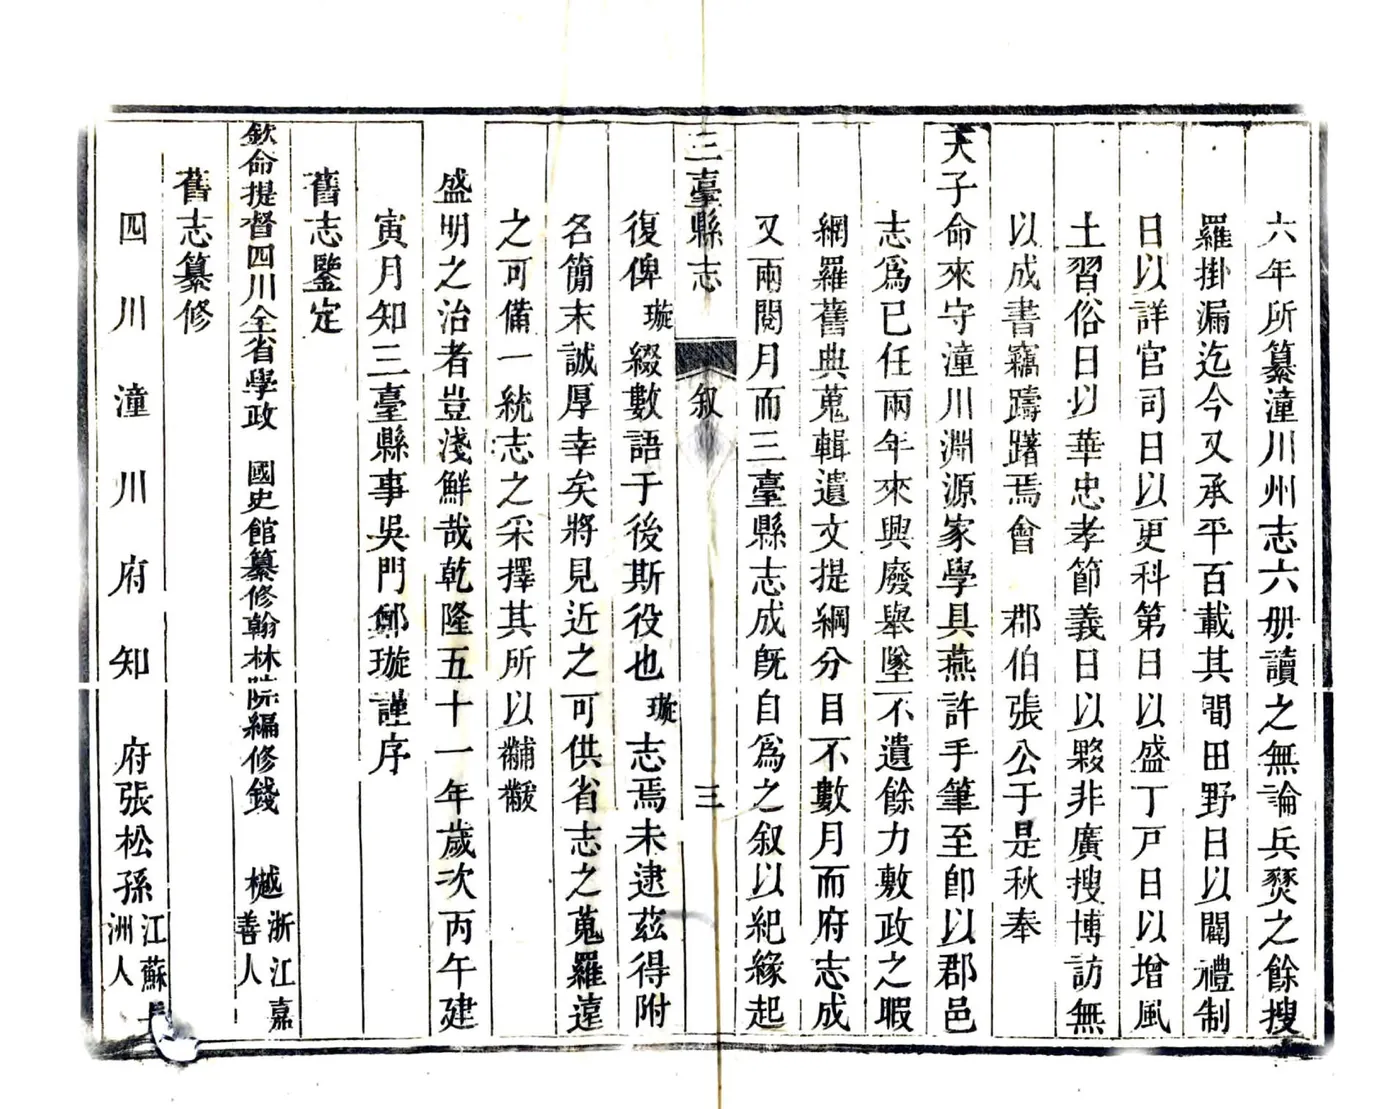 六年所纂潼川州志六册讀之無論兵燹之餘搜
羅掛漏迄今又承平百載其間田野日以闢禮制
日以詳官司日以更科第日以盛丁戸日以增風
土習俗日以華忠孝節義日以夥非廣搜博訪無
以成書竊躊躇焉會 郡伯張公于是秋奉
天子命來守潼川淵源家學具燕許手筆至卽以郡邑
志爲已任兩年來興廢舉墜不遺餘力敷政之暇
網羅舊典蒐輯遺文提綱分目不數月而府志成
又兩閱月而三臺縣志成旣自爲之叙以紀緣起
三臺縣志 叙 三
復俾璇綴數語于後斯役也璇志焉未逮茲得附
名簡末誠厚幸矣將見近之可供省志之蒐羅遠
之可備一統志之采擇其所以黼黻
盛明之治者豈淺鮮哉乾隆五十一年歲次丙午建
寅月知三臺縣事吳門鄭璇謹序
舊志鑒定
欽命提督四川全省學政 國史館纂修翰林院編修錢 樾浙江嘉善人
舊志纂修
四川潼川府知 府張松孫江蘇長洲人